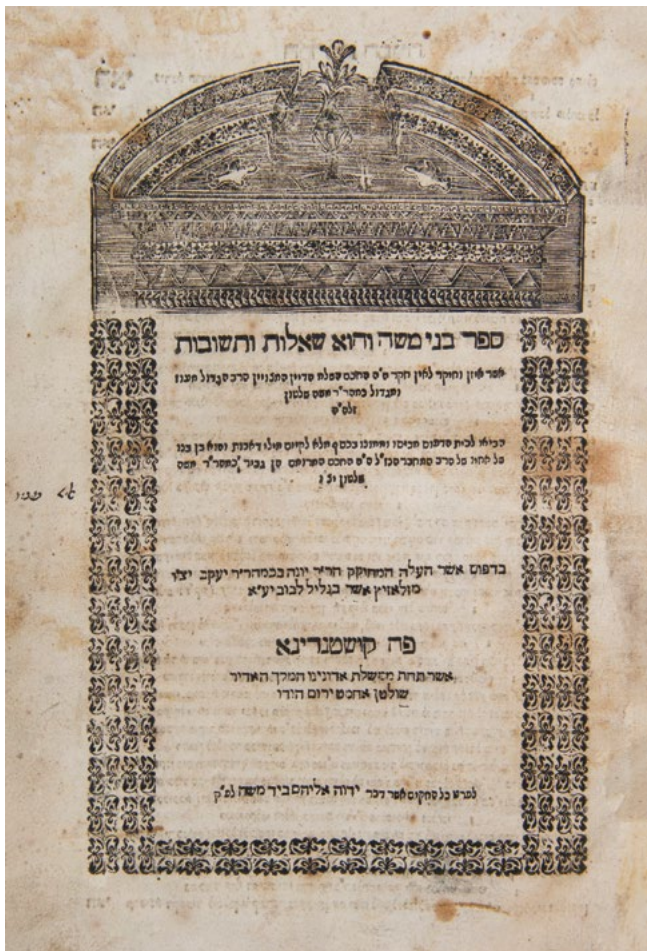 ספר בני משה והוא שאלות ותשובות
אשר אזן וחיקר לאין חקר ה"ה החכם השלם הדיין המצויין הרב הגדול מעוז
ומגדול כמהר"ר משה
זלה"ה
הביאו לבית הדפוס
של אחיו של הרב המחבר הנז"ל ה"ה החכם המרומם הן גביר כמהר"ר משה
בדפוס אשר העלה המחוקק הר"ר יונה בכמהר"ר יעקב יצ"ו
מזלאזיץ אשר בגליל לבוב יע"א
פה קושטנדינא
אשר תחת ממשלת אדונינו המלך האדיר
שולטן אחמט ירום הודו
לפרט כל המקום אשר דבר ידוה אליהם ביד משה לפ"ק